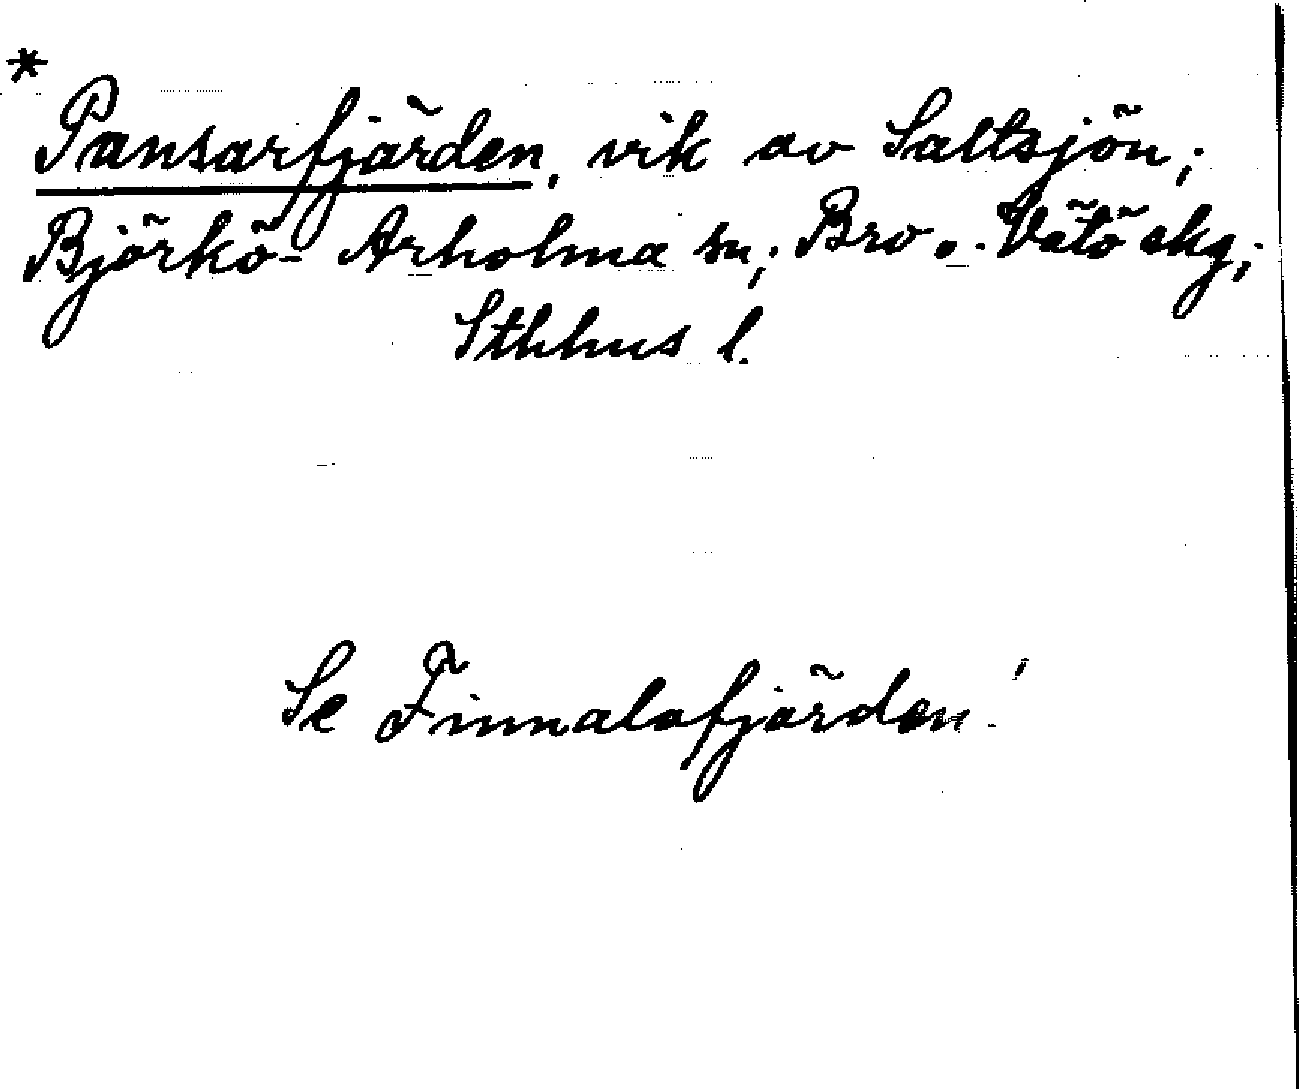 * Pansarfjärden, vik av Saltsjön;
Björkö-Arholma sn; Bro o. Vätö skg;
Sthlms l.
Se Finnalafjärden!